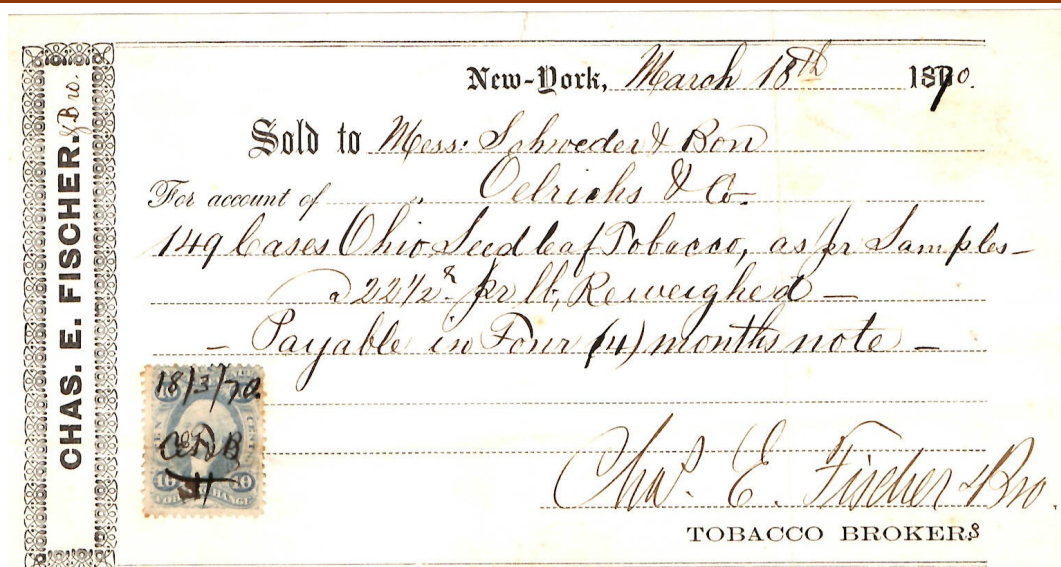 CHAS. E. FISCHER. & Bro.
New-York, March 18th 1870.
Sold to Mess: Schroeder & Bon
For account of " Oelrichs & Co.
149 Cases Ohio Seedleaf Tobacco, as pr Samples —
a 22½ c. pr lb, Reweighed —
— Payable in Four (4) months note —
18/3/70.
CEF & B
TEN CENTS
10 10
EXCHANGE
Chas. E. Fischer & Bro.
TOBACCO BROKERS